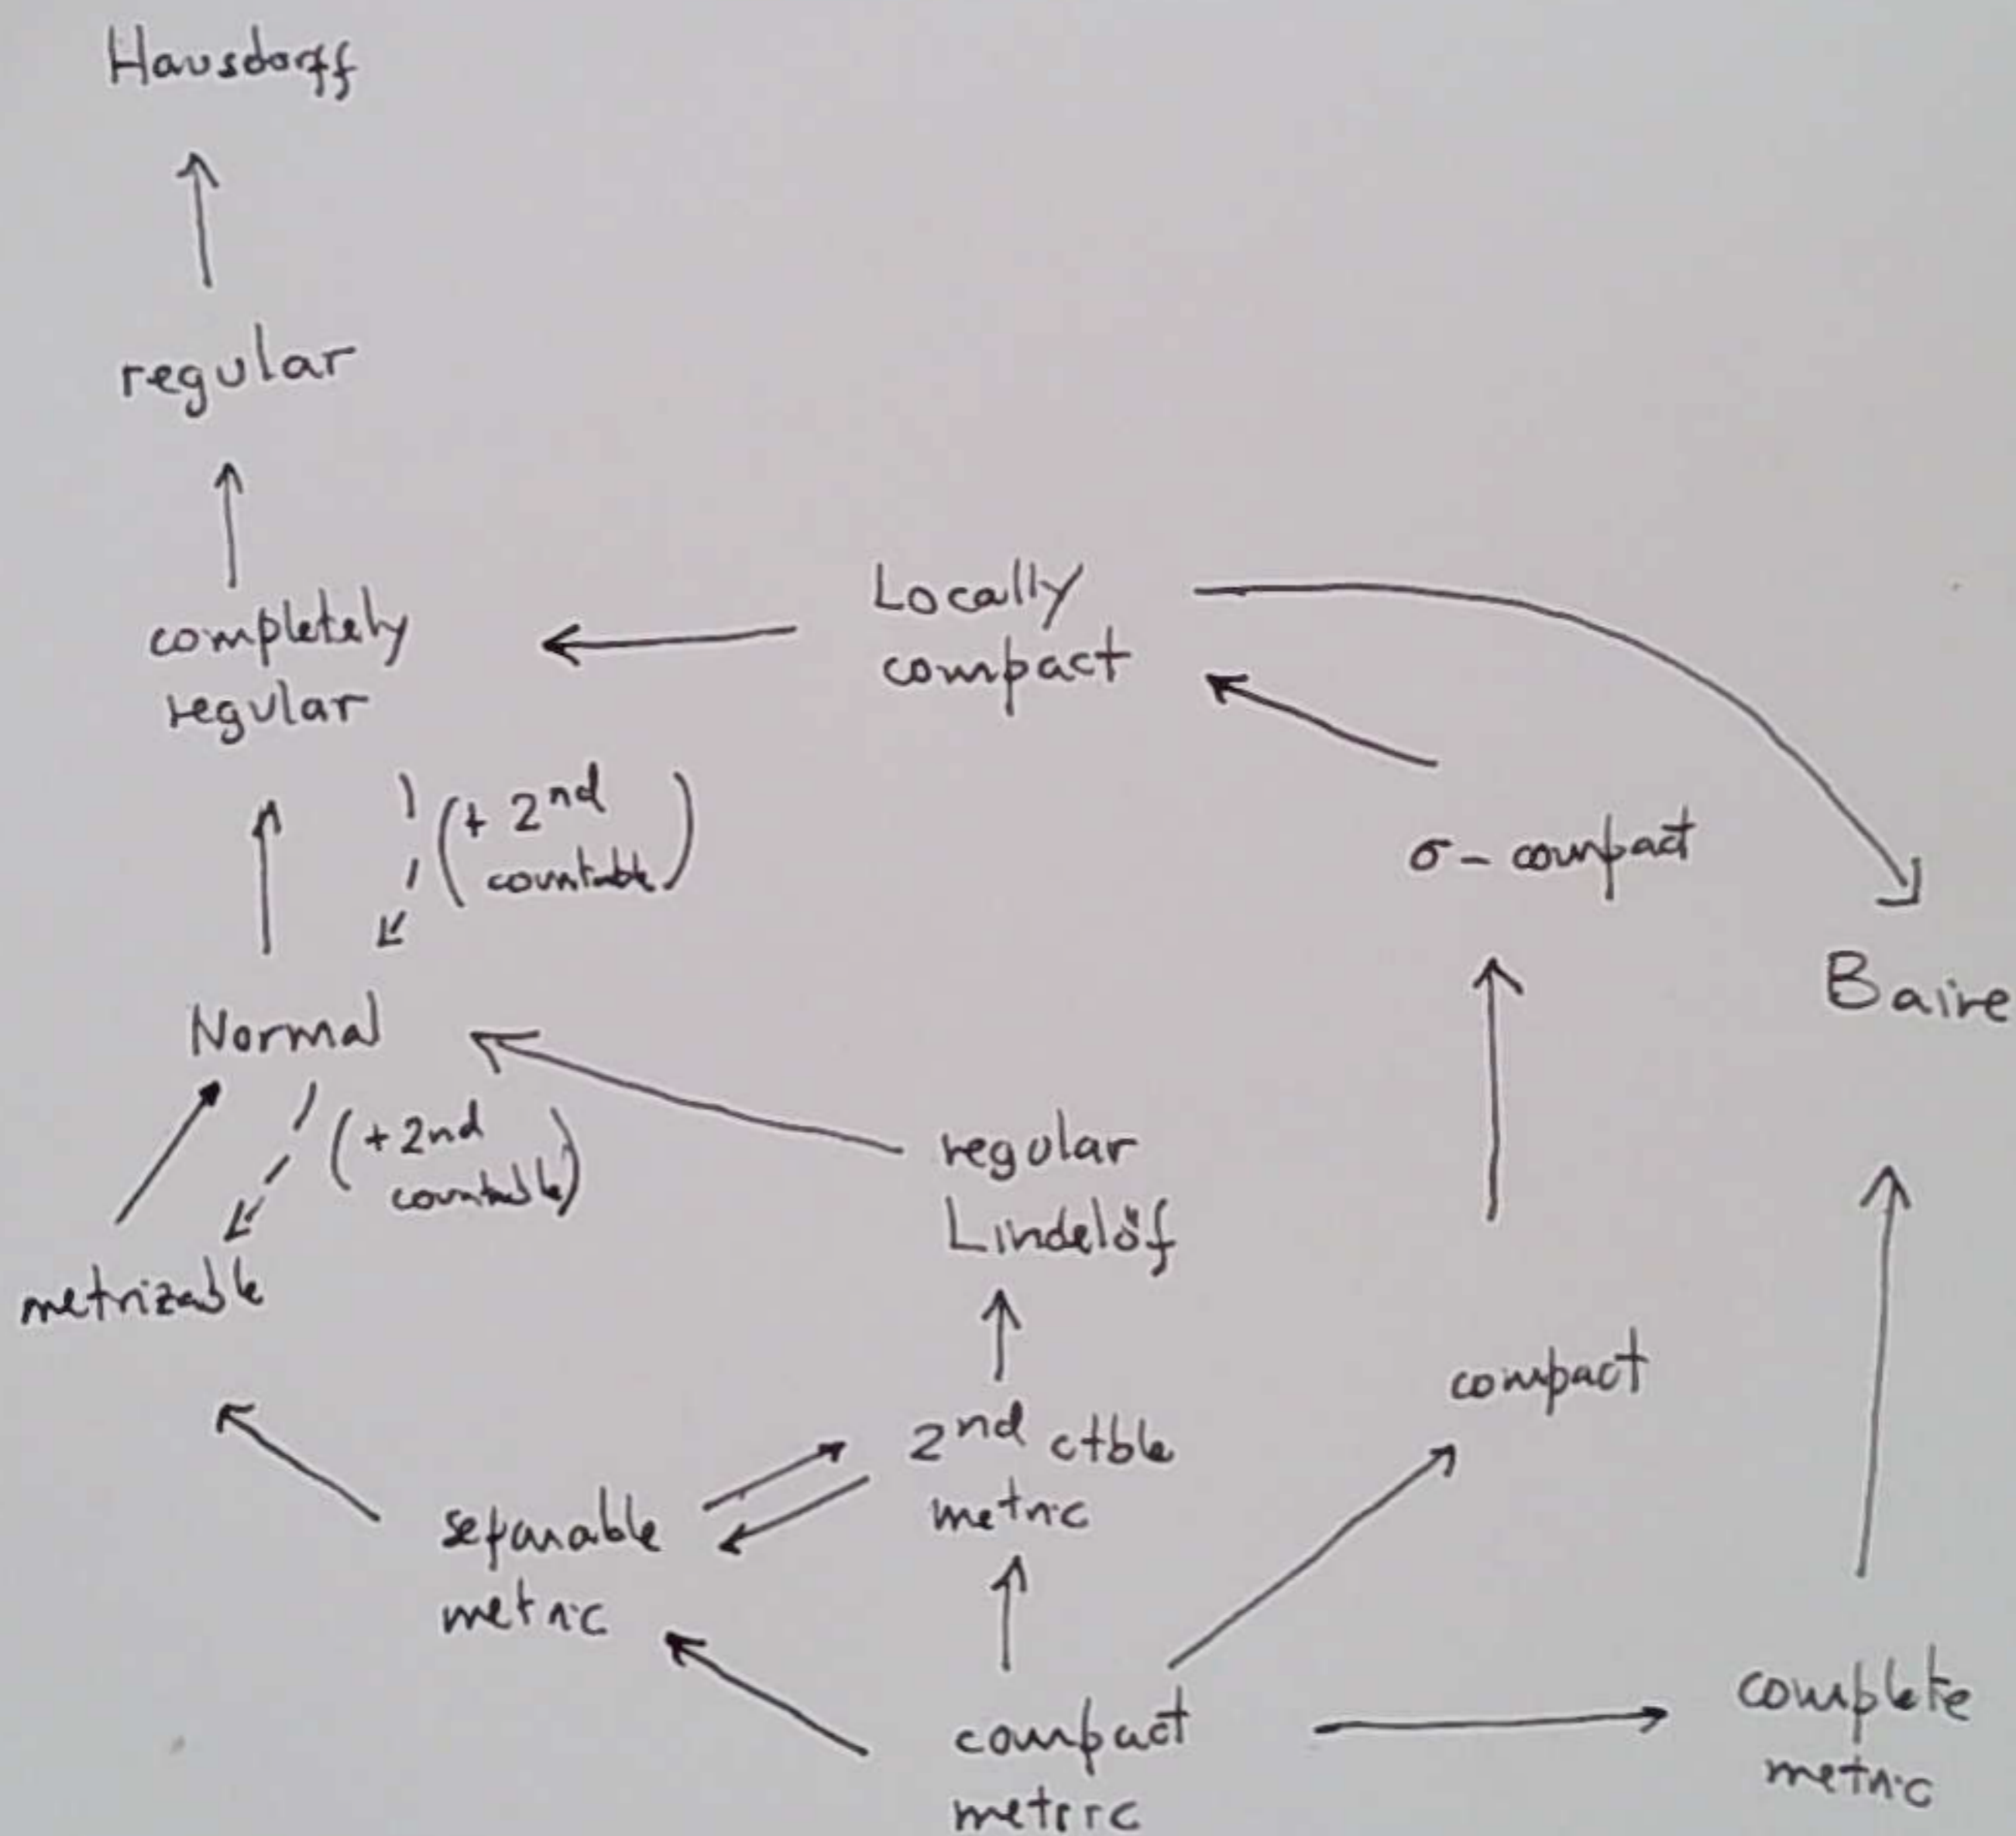 Hausdorff
regular
completely
regular
Locally
compact
(+ 2nd
countable)
σ - compact
Baire
Normal
(+ 2nd
countable)
regular
Lindelöf
metrizable
compact
2nd ctble
metric
separable
metric
compact
metric
complete
metric